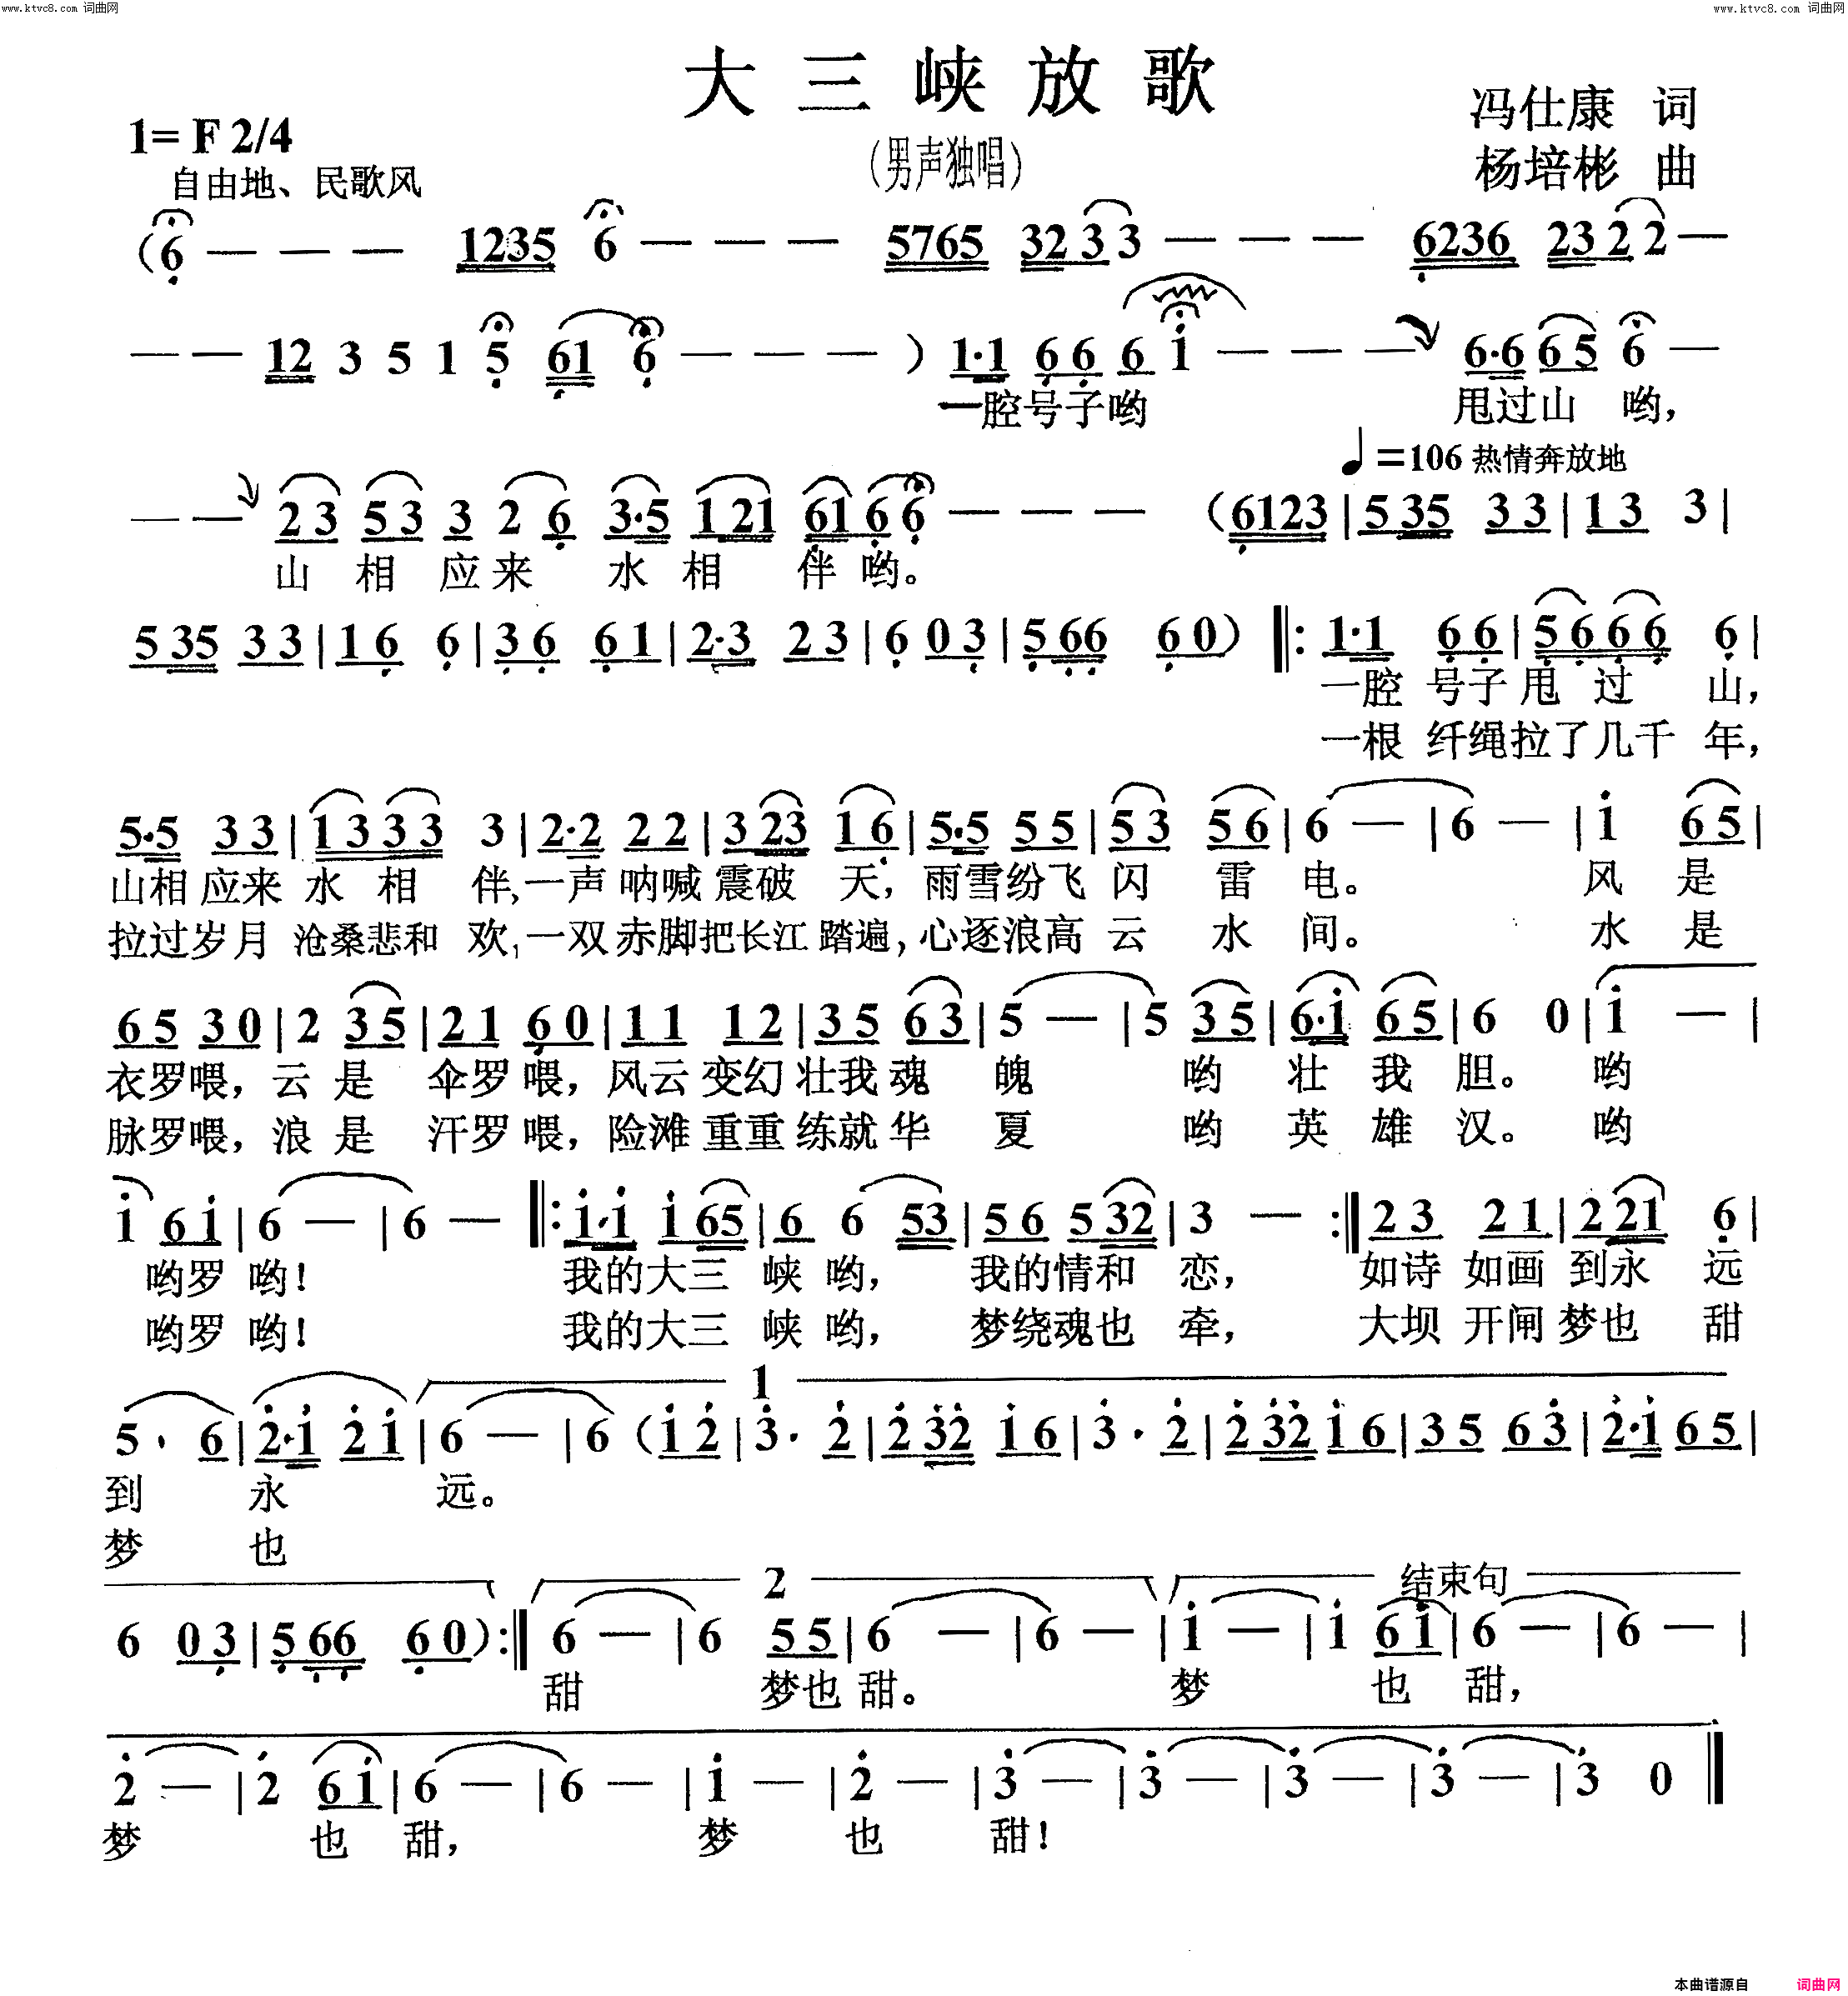 www.ktvc8.com 词曲网
www.ktvc8.com 词曲网
大三峡放歌
冯仕康 词
1= F 2/4
(男声独唱)
杨培彬 曲
自由地、民歌风
(6 — — — 1235 6 — — — 5765 3233 — — — 6236 2322 —
— — 12 3 5 1 5 61 6 — — — ) 1·1 6 6 6 1 — — — 6·6 6 5 6 —
一腔号子哟 甩过山 哟,
♩=106 热情奔放地
— — 2 3 5 3 3 2 6 3·5 1 21 6166 — — — (6123|5 35 3 3|1 3 3|
山 相 应来 水相 伴 哟。
5 35 3 3|1 6 6|3 6 6 1|2·3 2 3|6 0 3|5 66 6 0) ‖: 1·1 6 6|5 6 6 6 6|
一腔 号子 甩 过 山,
一根 纤绳拉了几千 年,
5·5 3 3|1 3 3 3 3|2·2 2 2|3 23 1 6|5·5 5 5|5 3 5 6|6 — |6 — |1 6 5|
山相 应来 水 相 伴,一声 呐喊 震破 天, 雨雪纷飞 闪 雷 电。 风 是
拉过岁月 沧桑悲和 欢,一双赤脚把长江 踏遍, 心逐浪高 云 水 间。 水 是
6 5 3 0|2 3 5|2 1 6 0|1 1 1 2|3 5 6 3|5 — |5 3 5|6·1 6 5|6 0|1 — |
衣罗喂, 云 是 伞罗 喂, 风云 变幻 壮我 魂 魄 哟 壮 我 胆。 哟
脉罗喂, 浪 是 汗罗 喂, 险滩 重重 练就 华 夏 哟 英 雄 汉。 哟
1 6 1|6 — |6 — ‖: 1·1 1 65|6 6 53|5 6 5 32|3 — :‖2 3 2 1|2 21 6|
哟罗 哟! 我的大三 峡 哟, 我的情和 恋, 如诗 如画 到永 远
哟罗 哟! 我的大三 峡 哟, 梦绕魂也 牵, 大坝 开闸 梦也 甜
1
5· 6|2·1 2 1|6 — |6 (1 2|3· 2|2 32 1 6|3· 2|2 32 1 6|3 5 6 3|2·1 6 5|
到 永 远。
梦 也
2 结束句
6 0 3|5 66 6 0) :‖6 — |6 5 5|6 — |6 — |1 — |1 6 1|6 — |6 — |
甜 梦也 甜。 梦 也 甜,
2 — |2 6 1|6 — |6 — |1 — |2 — |3 — |3 — |3 — |3 — |3 0‖
梦 也 甜, 梦 也 甜!
本曲谱源自 词曲网